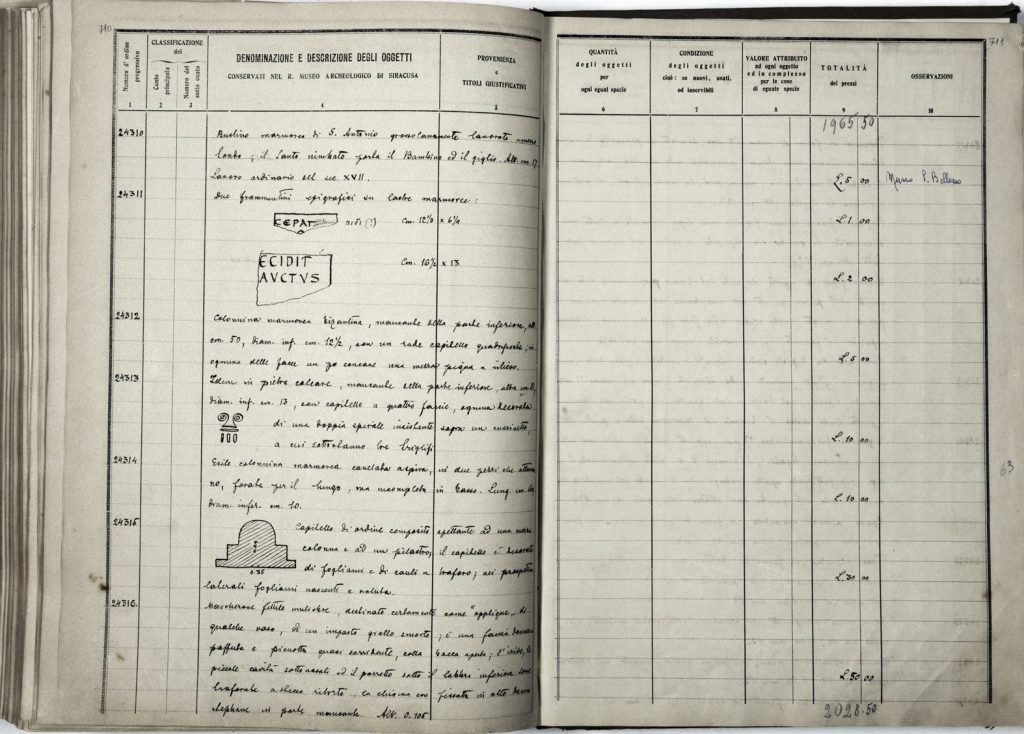 710
Numero d'ordine progressivo
CLASSIFICAZIONE del
Conto principale
Numero del sotto conto
DENOMINAZIONE E DESCRIZIONE DEGLI OGGETTI
CONSERVATI NEL R. MUSEO ARCHEOLOGICO DI SIRACUSA
PROVENIENZA
e
TITOLI GIUSTIFICATIVI
1 2 3 4 5
24310 Bustino marmoreo di S. Antonio grossolanamente lavorato a
tondo; il Santo nimbato porta il Bambino ed il giglio. Alt. cm. 17.
Lavoro ordinario del sec XVII.
24311 Due frammentini epigrafici su lastre marmoree:
CEPAT nidi (?) Cm. 12½ x 6¼
ECIDIT
AVCTVS
Cm. 16½ x 13
24312 Colonnina marmorea bizantina, mancante della parte inferiore, alt.
cm. 50, diam. inf. cm. 12½, con un rude capitello quadrifronte; in
ognuna delle facce un po' concave una mezza pigna a rilievo.
24313 Idem in pietra calcare, mancante della parte inferiore, alta
diam. inf. cm. 13, con capitello a quattro faccie, ognuna decorata
di una doppia spirale insistente sopra un cuscinetto,
a cui sottostanno tre triglifi
24314 Esile colonnina marmorea cordata a spira, in due pezzi che attacca
no, forata per il lungo, ma incompleta in basso. Lung.
diam. infer. cm. 10.
24315 Capitello di ordine composito spettante ad una mezza
colonna e ad un pilastro; il capitello è decorato
di fogliami e di cauli a traforo; nei prospetti
0.35
laterali fogliami nascenti e voluta.
24316. Mascherone fittile muliebre, destinato certamente come "applique" di
qualche vaso, di un impasto giallo smorto; è una faccia
paffuta e pienotta quasi sorridente, colla bocca aperta; l'iride, le
piccole cavità sottonasali ed il porretto sotto il labbro inferiore sono
traforate a stecco ritorto; la chioma era fissata in alto da una
stephane in parte mancante. Alt. 0.105
711
QUANTITÀ
degli oggetti
per
ogni egual specie
CONDIZIONE
degli oggetti
cioè: se nuovi, usati,
od inservibili
VALORE ATTRIBUITO
ad ogni oggetto
ed in complesso
per le cose
di eguale specie
TOTALITÀ
dei prezzi
OSSERVAZIONI
6 7 8 9 10
1965 50
L. 5 00 Museo P. Bellomo
L. 1 00
L. 2 00
L. 5 00
L. 10 00
L. 10 00
63
L. 30 00
2028.50